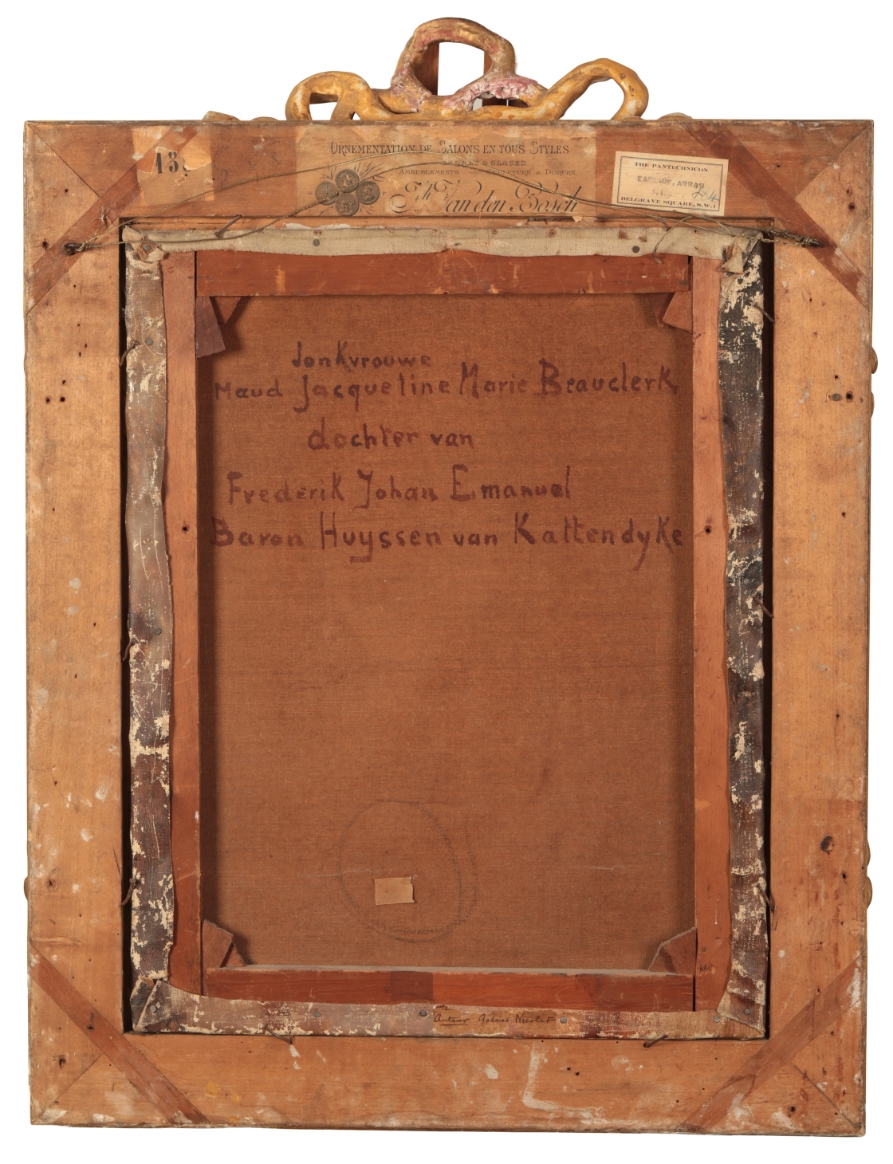 133
ORNEMENTATION DE SALONS EN TOUS STYLES
AMEUBLEMENTS
Jh. Van den Bosch
THE PANTECHNICON
EARL OF ARRAN
BELGRAVE SQUARE, S.W.1
Jonkvrouwe
Maud Jacqueline Marie Beauclerk
dochter van
Frederik Johan Emanuel
Baron Huyssen van Kattendyke